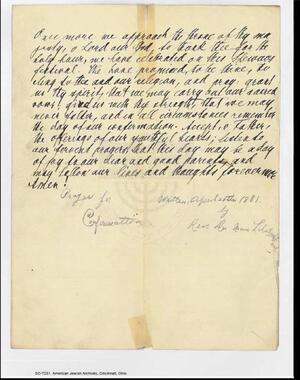 Once more we approach the throne of thy ma
jesty, o Lord our God, to thank thee for the
holy hour, we have celebrated on this Shewuos
festival. We have promised, to be thine, to
cling to thee and our religion, and pray, grant
us thy spirit, that we may carry out our sacred
vows! gird us with thy strength, that we may
never falter, and in all circumstances remember
the day of our confirmation. Accept, o Father,
the offerings of our youthful hearts; listen to
our fervent prayers that this day may be a day
of joy to our dear and good parents, and
may hallow our lives and thoughts forevermore
Amen!
Prayer for
Confirmation
Written, April 20th 1881.
by
Rev. Dr. Max
SC-7251. American Jewish Archives, Cincinnati, Ohio.